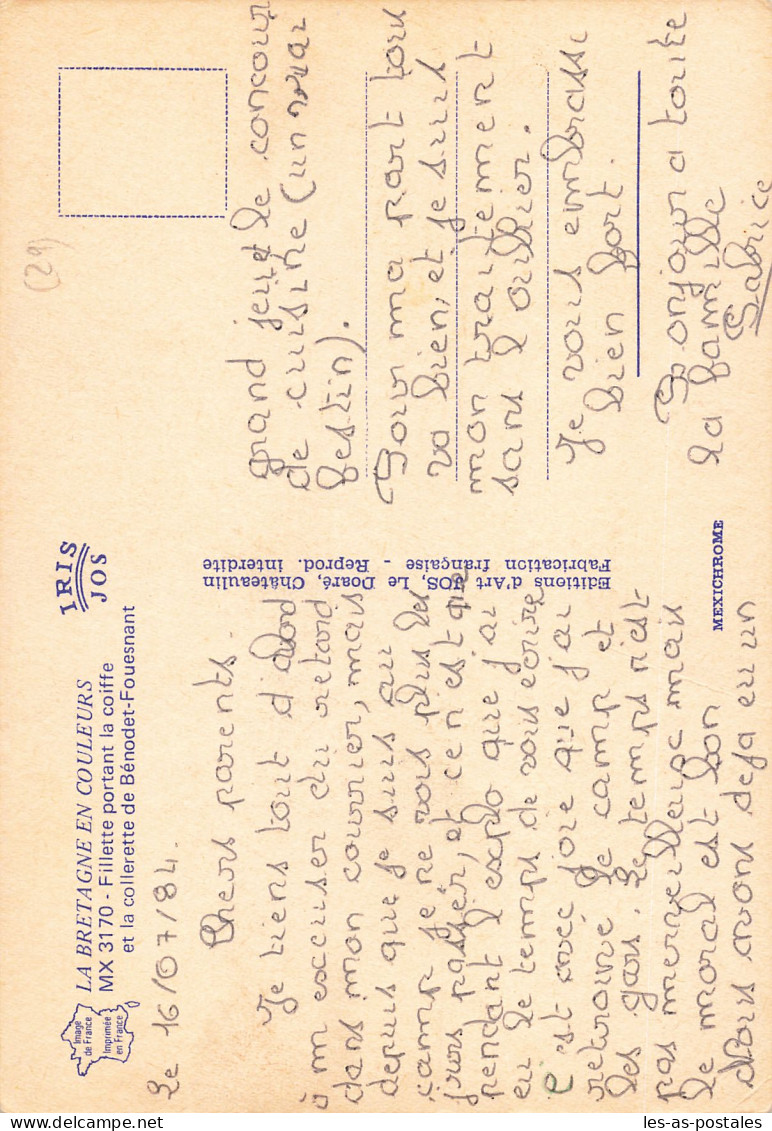 LA BRETAGNE EN COULEURS
MX 3170 - Fillette portant la coiffe
et la collerette de Bénodet-Fouesnant
Image
de France
Imprimée
en France
IRIS
JOS
Le 16/07/84.
Chers parents.
Je tiens tout d'abord
à m'excuser du retard
dans mon courrier, mais
depuis que je suis au
camp je ne vois plus les
jours passer, et ce n'est que
pendant l'explo que j'ai
eu le temps de vous écrire
c'est avec joie que j'ai
retrouvé le camp et
les gars. Le temps n'est
pas merveilleux mais
le moral est bon
Nous avons deja eu un
Editions d'Art JOS, Le Doaré, Châteaulin
Fabrication française - Reprod. interdite
MEXICHROME
(29)
grand jeu et le concour
de cuisine (un vrai
festin).
Pour ma part tous
va bien, et je suis
mon traitement
sans l'oublier.
Je vous embrasse
bien fort.
Bonjour a toute
la famille
Fabrice
les-as-postales